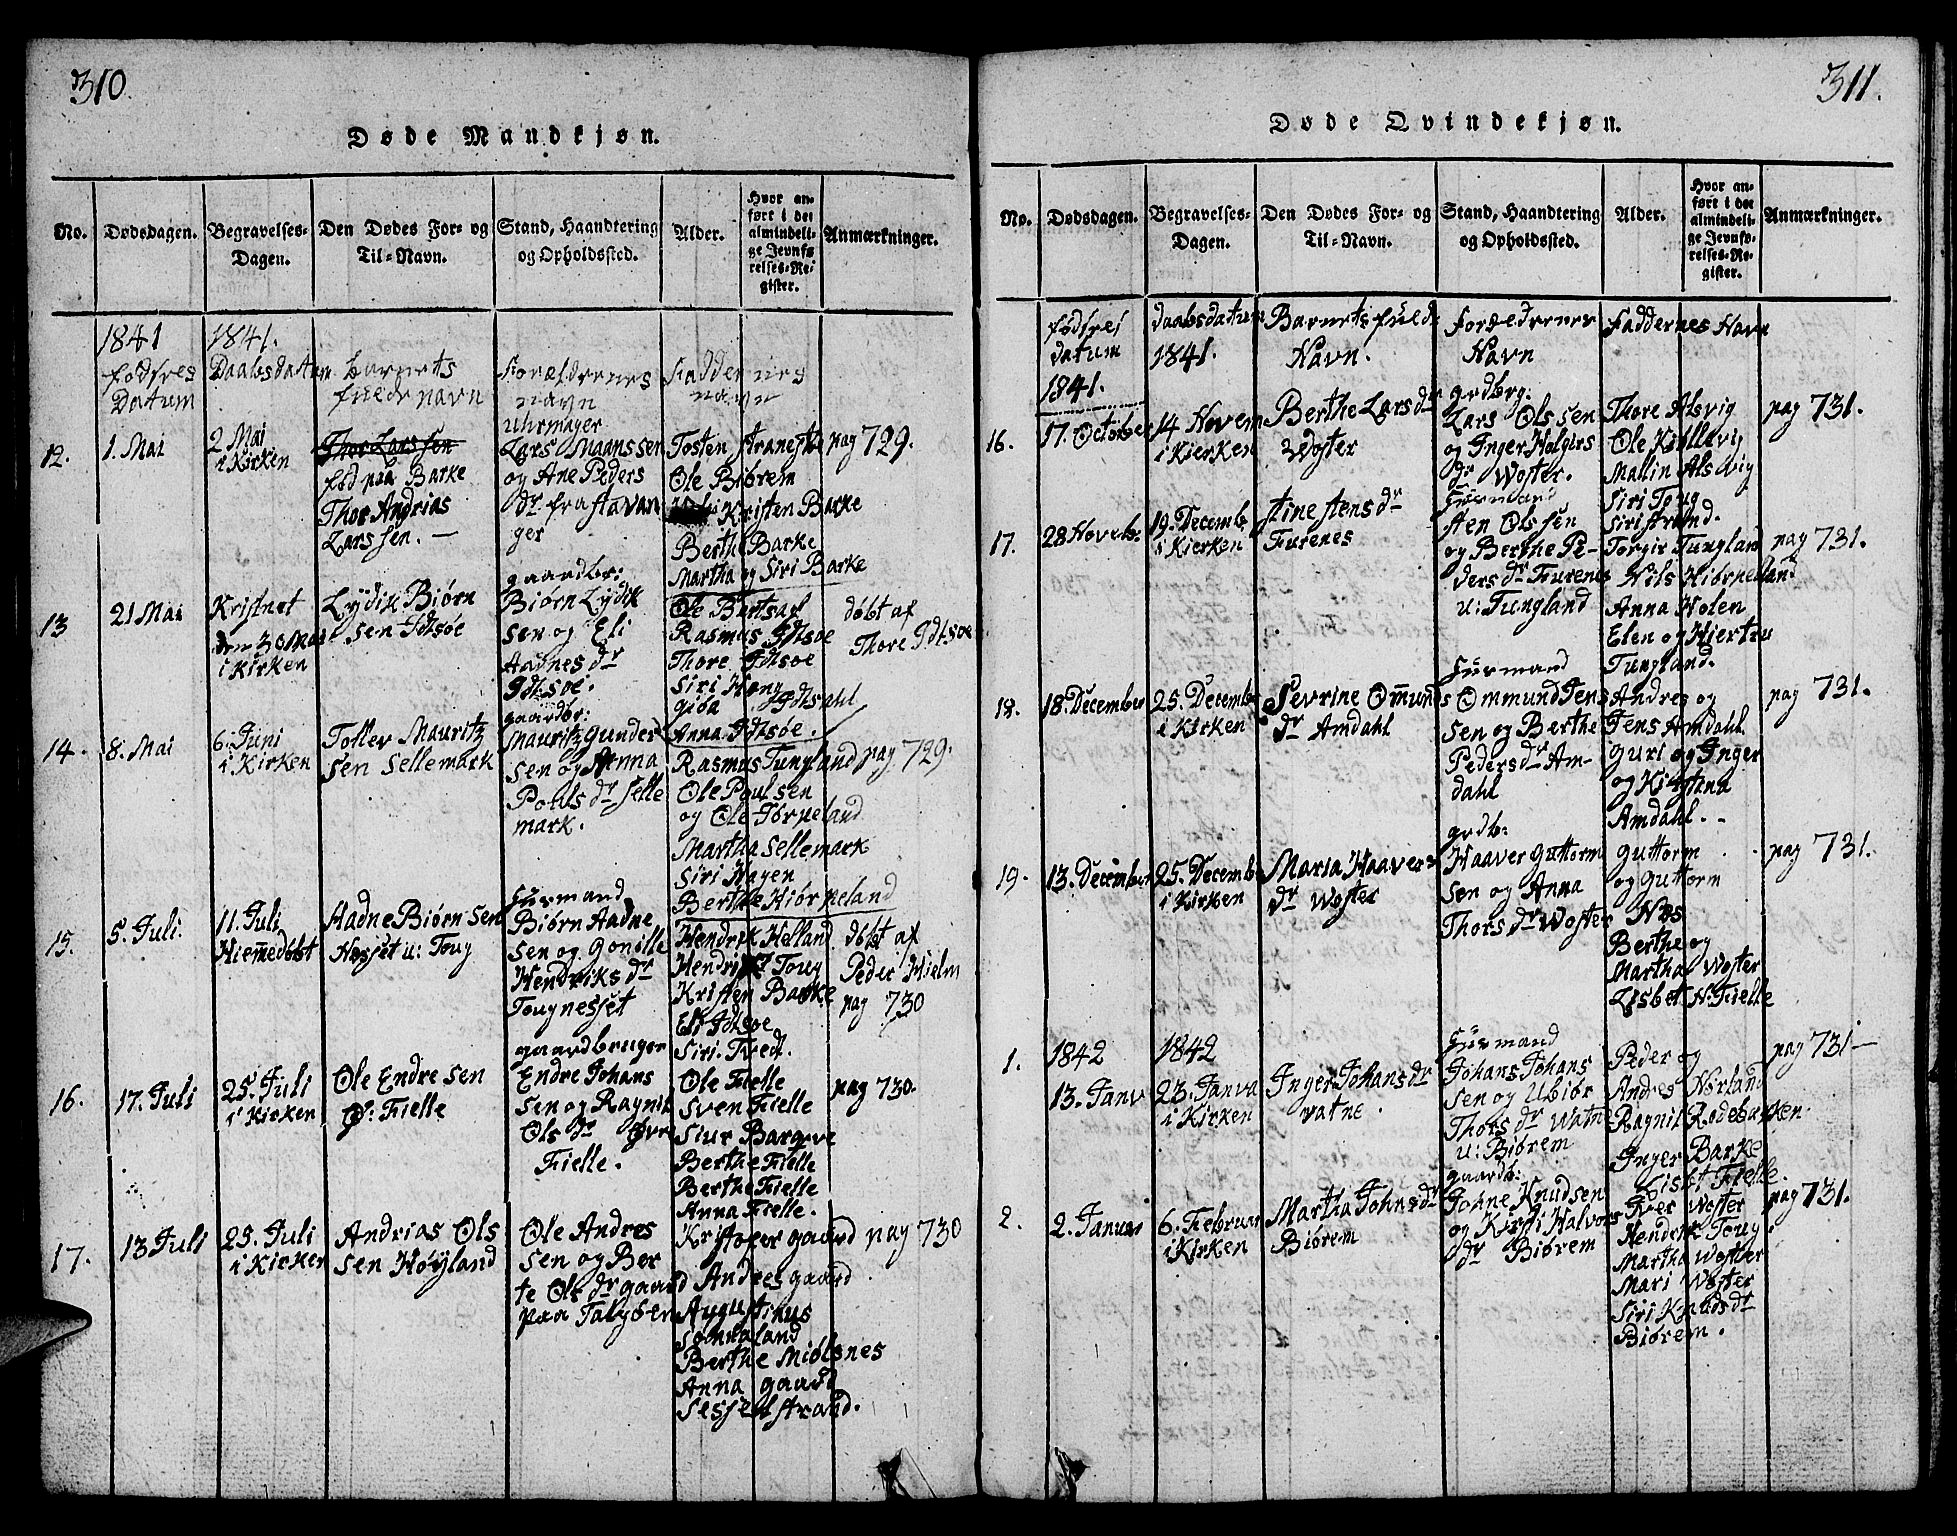 310.
Døde Mandkjøn.
No.
Dødsdagen.
Begravelses-
Dagen.
Den Dødes For- og
Til-Navn.
Stand, Haandtering
og Opholdssted.
Alder.
Hvor an-
ført i det
almindeli-
ge Jevnfø-
relses-Re-
gister.
Anmærkninger.
1841
fødsels
Datum
1841.
Daabsdatum
barnets
fulde navn
Forældrenes
navn
Faddernes
navn
12.
1. Mai
2 Mai
i Kirken
Thor Larssen
fød paa Barke
Thor Andrias
Larssen. —
Uhrmager
Lars Maanssen
og Ane Peders
dr fra stavan
ger
Tosten
Ole Biørem
Kristen Barke
Berthe Barke
Martha og Siri Barke
pag 729.
13
21 Mai
Kristnet
den 30 Mai
i Kirken
Lydik Biørn
sen Idtsøe
gaardbr:
Biørn Lydik
sen og Eli
Aadnes dr
Idtsoe.
Ole Bertsael
Rasmus Idtsoe
Thore Idtsoe
Siri Haug
giøa Idtsahl
Anna Idtsøe.
døbt af
Thore Idtsoe
14.
8. Mai
6. Juni
i Kirken
Tollev Mauritz
sen Sellemark
gaardbr:
Mauritz Gunder
sen og Anna
Pouls dr selle
mark.
Rasmus Tungland
Ole Poulsen
og Ole Jørpeland
Martha Sellemark
Siri Hagen
Berthe Hiørpeland
pag 729.
15.
5. Juli.
11. Juli
Hiemmedøbt
Aadne Biørnsen
Nesset u: Toug
Huusmand
Biørn Aadne
sen og Gonille
Hendriks dr
Tougnesset
Hendrik Helland
Hendrik Toug
Kristen Barke
Eli Idtsoe
Siri Tvedt.
døbt af
Peder Hielm
pag 730
16.
17. Juli
25. Juli
i Kirken
Ole Endresen
Ø: Fielle
gaardbruger
Endre Johans
sen og Ragnil
Ols dr Øvre
Fielle.
Ole Fielle
Sven Fielle
Siur Bargeve
Berthe Fielle
Berthe Fielle
Anna Fielle.
pag 730.
17.
13 Juli
25. Juli
i Kirken
Andrias Ols
sen Høyland
Ole Andres
sen og Ber
te Ols dr gaard
paa Talgøen
Kristofer gaard
Andres gaard
Augustinus
Sønnaland
Berthe Miølsnes
Anna gaard
Sessel strand.
pag 730
311.
Døde Qvindekjøn.
No.
Dødsdagen.
Begravelses-
Dagen.
Den Dødes For- og
Til-Navn.
Stand, Haandtering
og Opholdssted.
Alder.
Hvor an-
ført i det
almindeli-
ge Jevnfø-
relses-Re-
gister.
Anmærkninger.
fødsels
datum
1841.
daabsdatum
1841.
Barnets fulde
Navn.
forældrenes
Navn
Faddernes Navn
16.
17. October
14. Novem
i Kierken
Berthe Lars dr
Woster
grdbrg:
Lars Olssen
og Inger Holgers
dr Woster.
Thore Alsvig
Ole Kiøllevig
Mallin Alsvig
Siri Toug
Siri strand.
pag 731.
17.
28 Novebr.
19. Decemb
i Kierken
stine stens dr
Furenes
Huusmand
sten Olssen
og Berthe Pe-
ders dr Furenes
u: Tungland
Torgir Tungland
Nils Hiørpeland
Anna Holen
Elen og Hiertru
Tungland.
pag 731.
18.
18. December
25. Decemb
i Kirken
Severine Ommunds
dr Amdahl
Huusmand
Ommund Jens
sen og Berthe
Peders dr Am-
dahl
Andres og
Jens Amdahl.
Guri og Inger
og Kirstena
Amdahl. -
pag 731.
19.
13. December
25. Decemb
i Kirken
Maria Haavers
dr Woster
grdb:
Haaver Guttorm
sen og Anna
Thors dr Woster
guttorm
og Guttorm
Næs
Berthe og
Martha Woster
Lisbet N: Fielle
pag 731.
1.
1842
13. Janv
1842
23. Janva
i Kirken
Inger Johans dr
vatne.
Huusmand
Johans Johans
sen og Ubiør
Thors dr Vatne
u: Biørem
Peder og
Andres Nørland
Ragnil Rødebarken.
Inger Barke
Lisbt Fielle.
pag 731 —
2.
2. Januari
6. Februar
i Kirken
Martha Johns dr
Biørem
gaardb:
Johne Knudsen
og Kirsti Halvors
dr Biørem
Iver Woster
Hendrik Toug
Martha Woster
Mari Woster
Siri Knuds dr
Biørem.
pag 731.